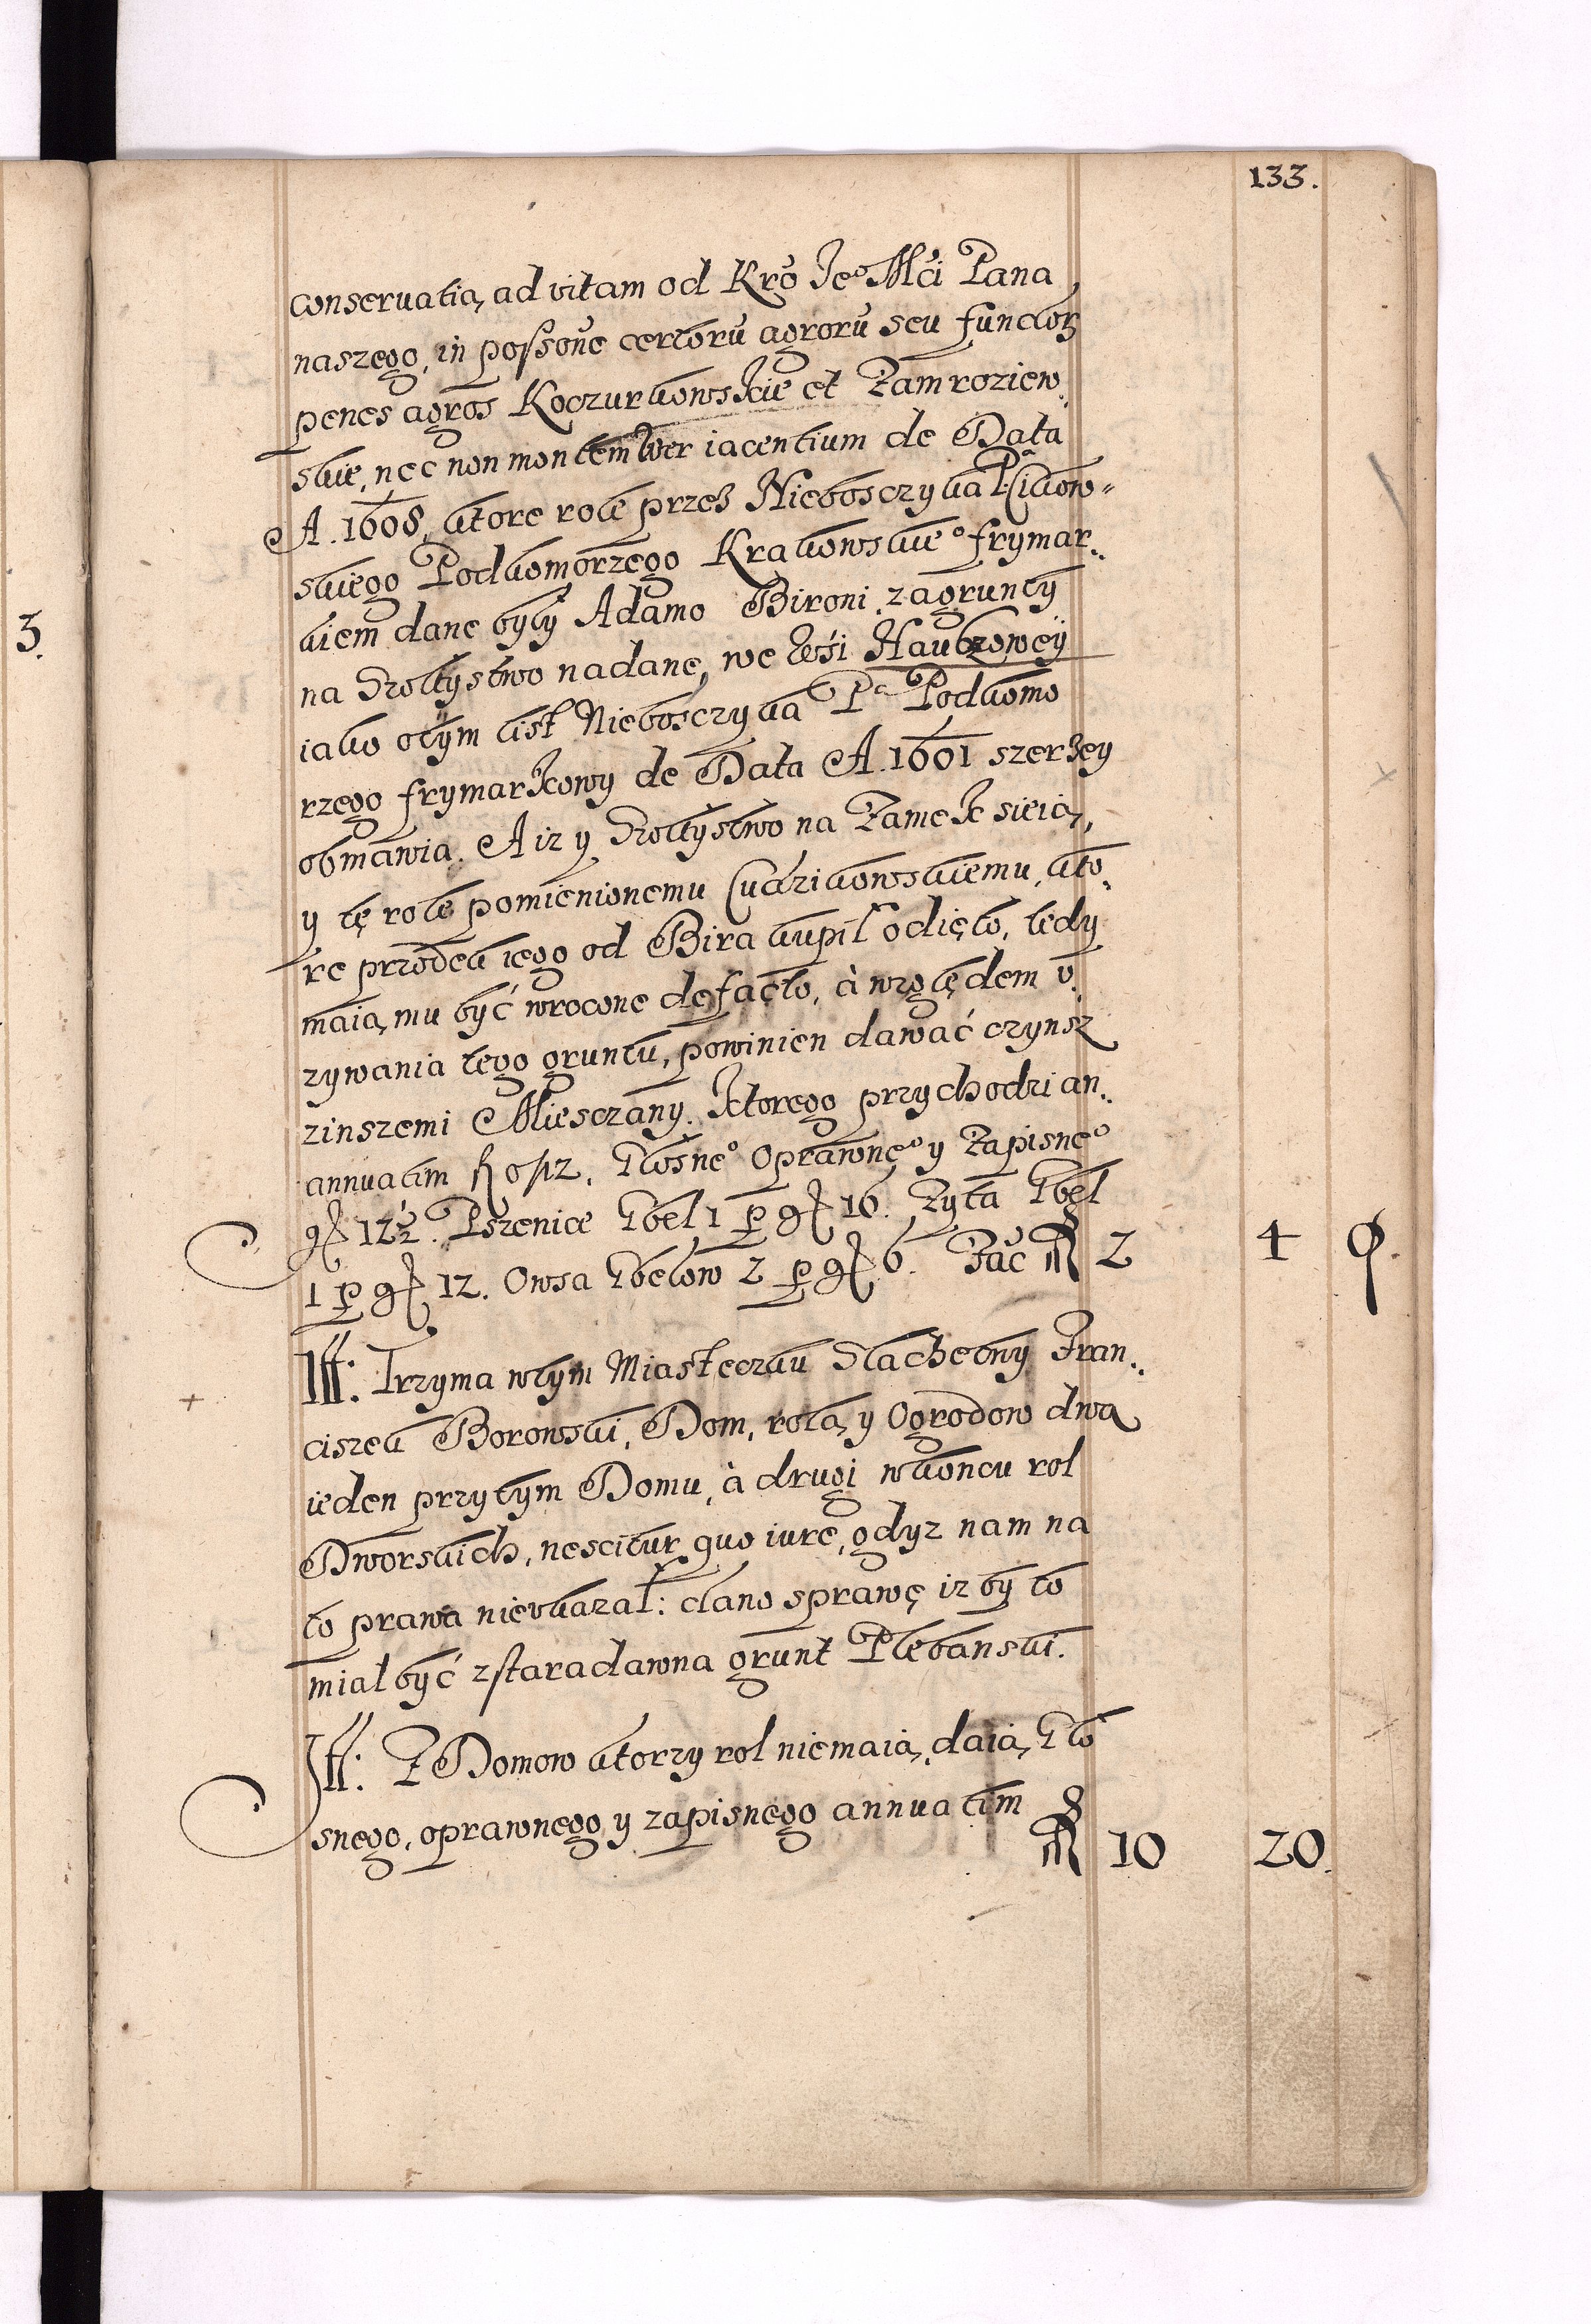 133.
conseruatią ad vitam od Kro Je° Mći Pana
naszego, in possone certoru agroru seu fundor
penes agros Koczurkowskie et Zamroziew
skie, nec non montem Wer iacentium de Data
A. 1608, ktore role przez Nieboszczyka P. Cikow-
skiego Podkomorzego Krakowskie° frymar..
kiem dane były Adamo Bironi, za grunty
na Szołtystwo nadane, we Wsi Haukowey
iako o tym list Nieboszczyka Pa Podkomo
rzego frymarkowy de Data A. 1601 szerzey
obmawia. A iz y Szołtystwo na Zamek sieią,
y tę role pomienionemu Cudzikowskiemu, kto..
re przodek iego od Bira kupił odięto, tedy
maią mu być wrocone de facto, à względem v..
zywania tego gruntu, powinien dawać czynsz
z inszemi Miesczany. Ktorego przychodzi an..
annuatim Kłosne° Oprawne° y Zapisne°
gł 12½. Pszenice Kbel 1 p gł 16. Zyta Kbel
1 p gł 12. Owsa Kbelow 2 p gł 6. Fac 2 4 9.
Itt: Trzyma w tym Miasteczku Slachetny Fran..
ciszek Borowski, Dom, rolą y Ogrodow dwa
ieden przy tym Domu, à drugi w koncu rol
Dworskich, nescitur quo iure, gdyz nam na
to prawa nie vkazał: dano sprawę iz by to
miał być z staradawna grunt Plebanski.
Itt: Z Domow ktorzy rol nie maią, daią Kło
snego, oprawnego y zapisnego annuatim 10 20.
3.